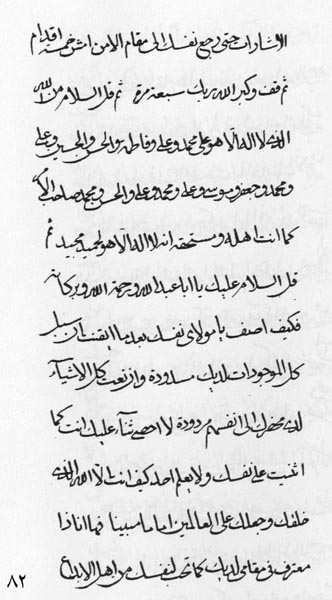 الاشارات حتى ترجع نفسك الى مقام الامن امش خمسة اقدام
ثم قف وكبر الله ربك سبعة مرة ثم قل السلام من الله
الذي لا اله الا هو على محمد وعلي وفاطمة والحسن والحسين وعلي
ومحمد وجعفر وموسى وعلي ومحمد وعلي والحسن ومحمد صاحب الامر
كما انت اهله ومستحقه انه لا اله الا هو لحميد مجيد ثم
قل السلام عليك يا ابا عبد الله ورحمة الله وبركاته
فكيف اصف يا مولاي نفسك بعد ما ايقنت ان سبل
كل الموجودات لديك مسدودة وان نعت كل الاشياء
لدى حضرتك الى انفسهم مردودة لا احصي ثناء عليك انت كما
اثنيت على نفسك ولا يعلم احد كيف انت الا الله الذي
خلقك وجعلك على العالمين اماما مبينا فها انا ذا
معترف في مقامي لديك كما تحب لنفسك من اهل الابداع
٨٢